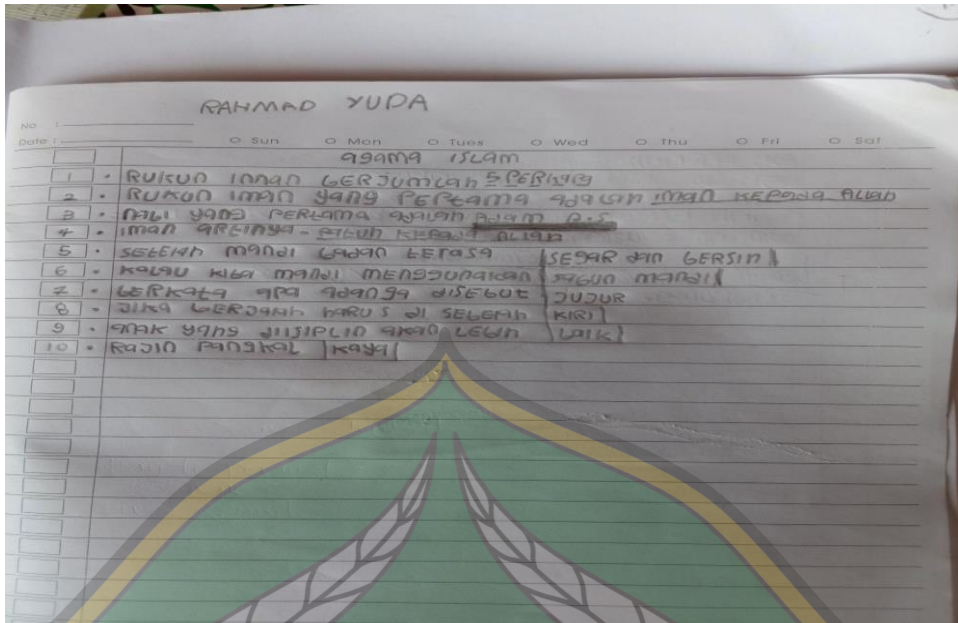 RAHMAD YUDA
No :
Date : Sun Mon Tues Wed Thu Fri Sat
agama ISLam
1 . RUKUN Iman bERJUMLah 5 PERkara
2 . RUKUN Iman yang PERtama adalah Iman KEPada ALLah
3 . nabi yang PERtama adalah Adam A.S
4 . Iman aRtinya KEPada ALLah
5 . SEtELah mandi badan tERasa SEGAR dan bERSIh
6 . kaLau kita mandi mEnggunakan sabun mandi
7 . bERkata apa adanya diSEbUt JUJUR
8 . JIka bERJaLan haRUS di SEbELah KIRI
9 . anak yang diISIPLIn akan LEbIh baIk
10 . RaJIn PangkaL kaya